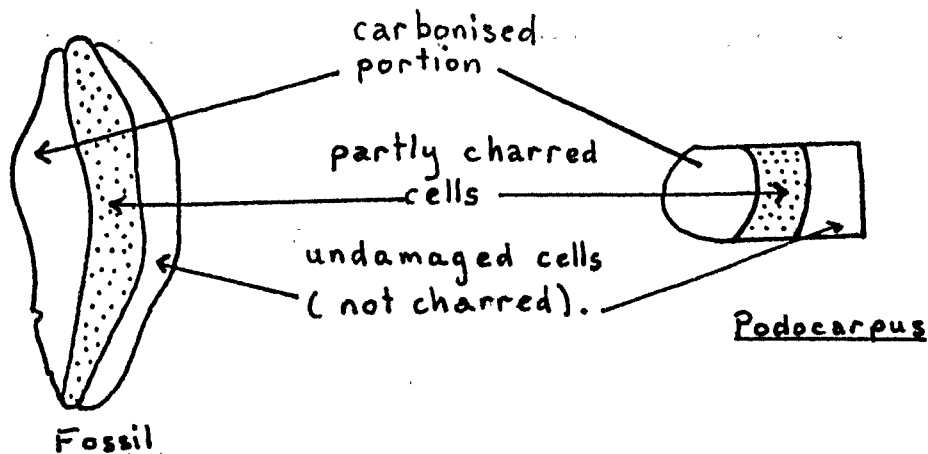 carbonised
portion
partly charred
cells
undamaged cells
(not charred).
Podocarpus
Fossil